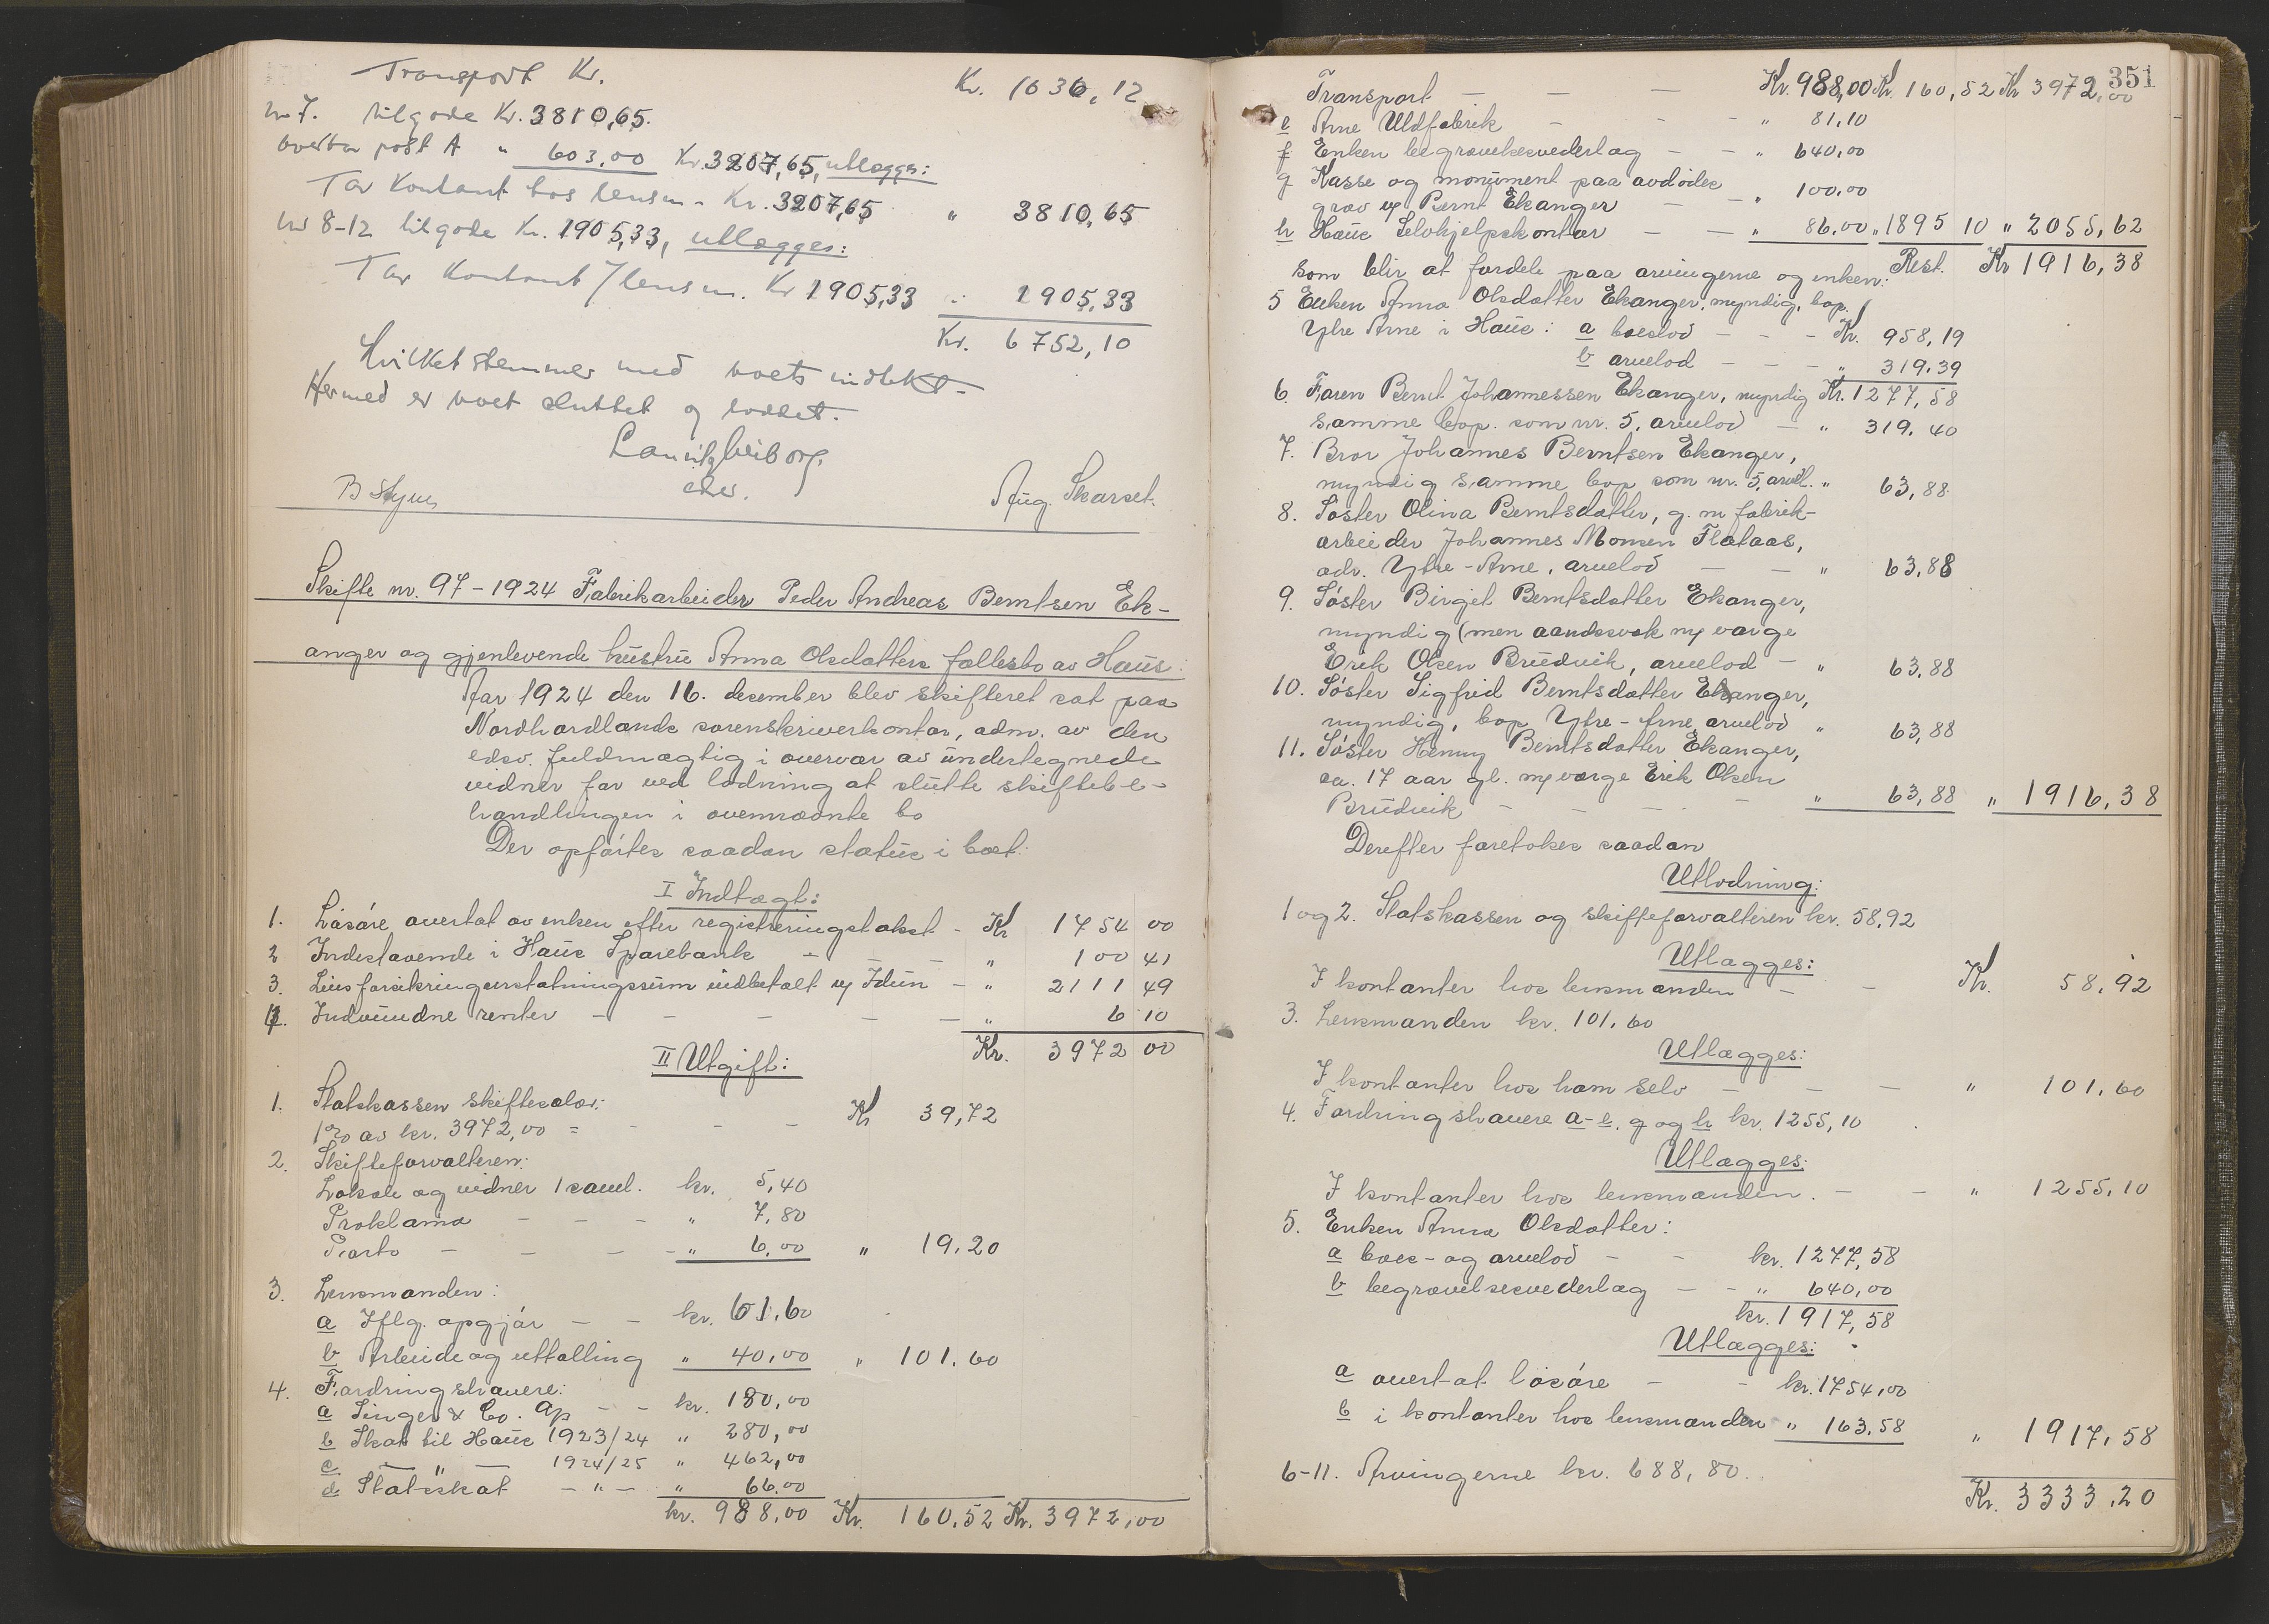 Transport Kr. Kr. 1036,12
nr 7. tilgode Kr. 3810,65.
overtar post A " 603,00 Kr. 3207,65, utlægges:
Tar Kontant hos lensm. Kr. 3207,65 " 3810,65
nr 8-12 tilgode Kr. 1905,33, utlægges:
Tar Kontant / lensm. Kr 1905,33 " 1905,33
Kr. 6752,10
Hvilket stemmer med boets indtekt.
Hermed er boet sluttet og loddet.
edsv.
B Styve Aug. Skarset.
Skifte nr. 97-1924 Fabrikarbeider Peder Andreas Berntsen Ek-
anger og gjenlevende hustru Anna Olsdatters fællesbo av Haus:
Aar 1924 den 16. desember blev skifteret sat paa
Nordhordlands sorenskriverkontor, adm. av den
edsv. fuldmægtig i overvær av undertegnede
vidner for ved lodning at slutte skiftebe-
handlingen i ovennævnte bo
Der opførtes saadan status i boet:
I Indtægt:
1. Løsøre overtat av enken efter registreringstakst - Kr 1754 00
2 Indestaaende i Haus Sparebank - - " 100 41
3. Livsforsikringserstatningssum indbetalt af Idun - " 2111 49
4. Indvundne renter - - - - - " 6 10
Kr. 3972 00
II Utgift:
1. Statskassen skiftesalær:
1% av kr. 3972,00 = - - - Kr 39,72
2. Skifteforvalteren:
Lokale og vidner 1 saml. kr. 5,40
Proklama - - - " 7,80
Porto - - - - " 6,00 " 19,20
3. Lensmanden:
a Iflg. opgjør - - kr. 61,60
b Arbeide og uttælling " 40,00 " 101,60
4. Fordringshavere:
a Singer & Co. Ap - - kr. 180,00
b Skat til Haus 1923/24 " 280,00
c — " — 1924/25 " 462,00
d Statsskat - " - " 66,00
kr. 988,00 Kr. 160,52 Kr. 3972,00
351
Transport - - - Kr. 988,00 Kr. 160,52 Kr 3972,00
e Arne Uldfabrik - - - " 81,10
f Enken begravelsesvederlag - - " 640,00
g Kasse og monument paa avdødes
grav af Bernt Ekanger - - " 100,00
h Haus Selvhjelpskontor - - " 86,00 " 1895 10 " 2055,62
Rest. Kr 1916,38
som blir at fordele paa arvingerne og enken:
5 Enken Anna Olsdatter Ekanger, myndig, bop.
Ytre Arne i Haus: a boeslod - - - Kr. 958,19
b arvelod - - - " 319,39
Kr. 1277,58
6. Faren Bernt Johannessen Ekanger, myndig
samme bop. som nr. 5, arvelod - " 319,40
7. Bror Johannes Berntsen Ekanger,
myndig samme bop som nr. 5, arvel. " 63,88
8. Søster Olina Berntsdatter, g. m fabrik-
arbeider Johannes Monsen Flataas,
adr. Ytre-Arne, arvelod - - " 63,88
9. Søster Birgit Berntsdatter Ekanger,
myndig (men aandssvak m/ værge
Erik Olsen Brudvik, arvelod - " 63,88
10. Søster Sigfrid Berntsdatter Ekanger,
myndig, bop Ytre-Arne, arvelod " 63,88
11. Søster Henny Berntsdatter Ekanger,
ca. 17 aar gl. m/ værge Erik Olsen
Brudvik - - - - " 63,88 " 1916,38
Derefter foretokes saadan
Utlodning:
1 og 2. Statskassen og skifteforvalteren kr. 58,92
Utlægges:
I kontanter hos lensmanden - - Kr. 58,92
3. Lensmanden kr. 101,60
Utlægges:
I kontanter hos ham selv - - - " 101,60
4. Fordringshavere a-e, g og h kr. 1255,10
Utlægges:
I kontanter hos lensmanden. - - " 1255,10
5. Enken Anna Olsdatter:
a boes- og arvelod - - kr. 1277,58
b begravelsesvederlag - - " 640,00
kr. 1917,58
Utlægges:
a overtat løsøre - - kr. 1754,00
b i kontanter hos lensmanden " 163,58 " 1917,58
6-11. Arvingerne kr. 688,80.
Kr. 3333,20